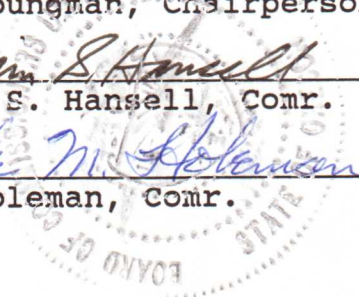 oungman, Chairperso
S. Hansell
S. Hansell, Comr.
M. Holeman
oleman, Comr.
BOARD OF CO
STATE OF O